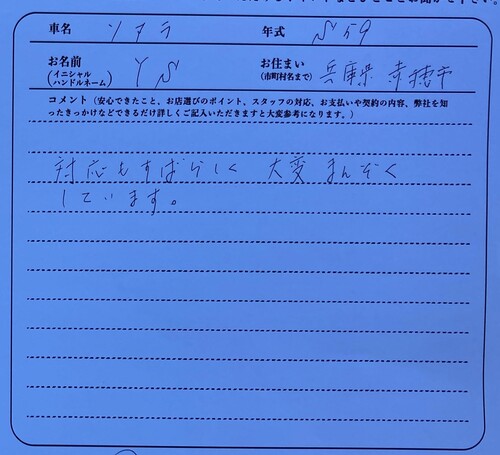 車名 ソアラ 年式 S59
お名前 (イニシャル ハンドルネーム) YS お住まい (市町村名まで) 兵庫県 赤穂市
コメント（安心できたこと、お店選びのポイント、スタッフの対応、お支払いや契約の内容、弊社を知
ったきっかけなどできるだけ詳しくご記入いただきますと大変参考になります。）
対応もすばらしく 大変まんぞく
しています。